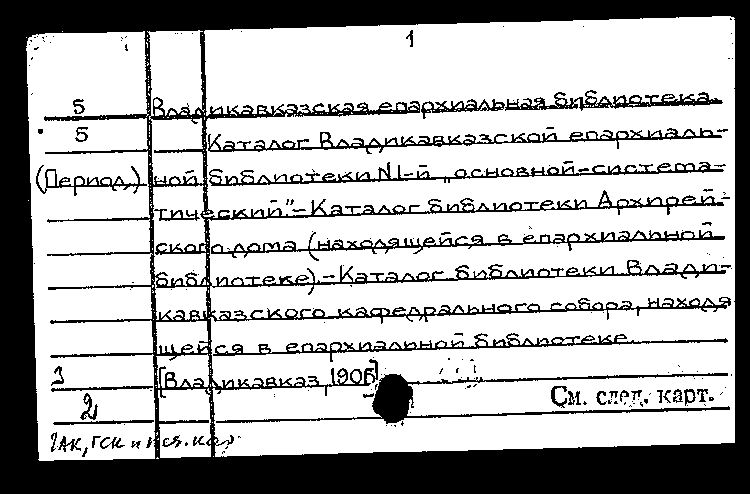 1
5 Владикавказская епархиальная библиотека.
5 Каталог Владикавказской епархиаль-
(Период.) ной библиотеки N1-й „основной-система-
тический."-Каталог библиотеки Архирей-
ского дома (находящейся в епархиальной
библиотеке).-Каталог библиотеки Влади-
кавказского кафедрального собора, находя
щейся в епархиальной библиотеке.
3 [Владикавказ, 1906]
2 См. след. карт.